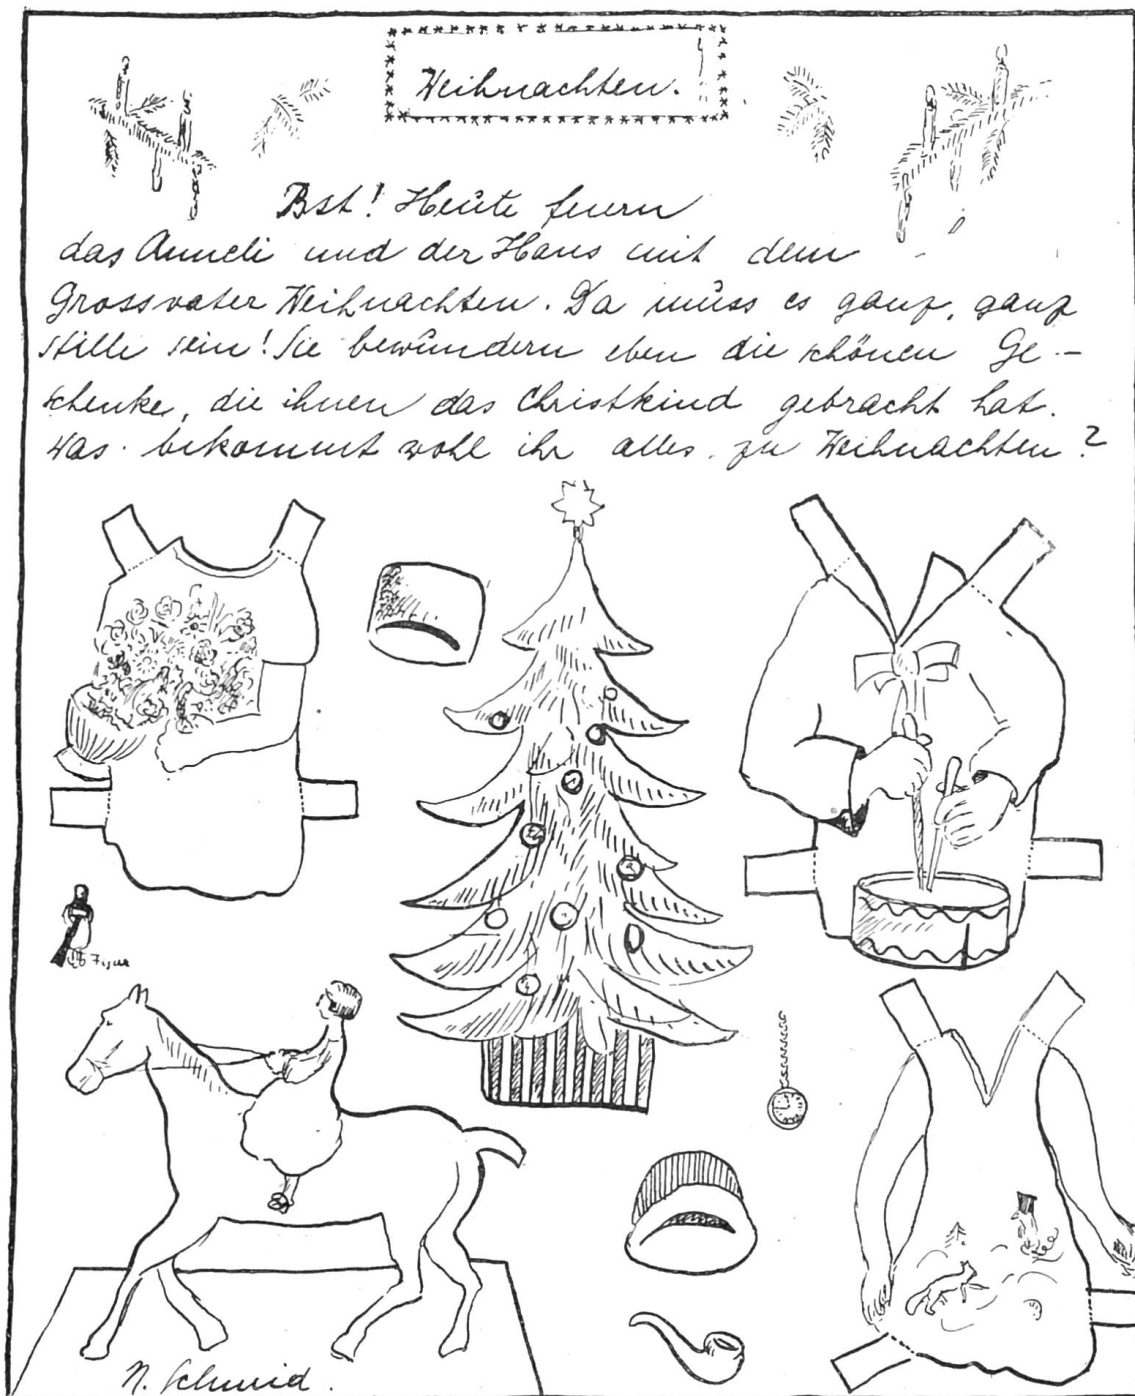 Weihnachten.
Bst! Heute feiern
das Anneli und der Hans mit dem
Grossvater Weihnachten. Da muss es ganz, ganz
stille sein! Sie bewundern eben die schönen Ge-
schenke, die ihnen das Christkind gebracht hat.
Was bekommt wohl ihr alles zu Weihnachten?
N. Schmid.